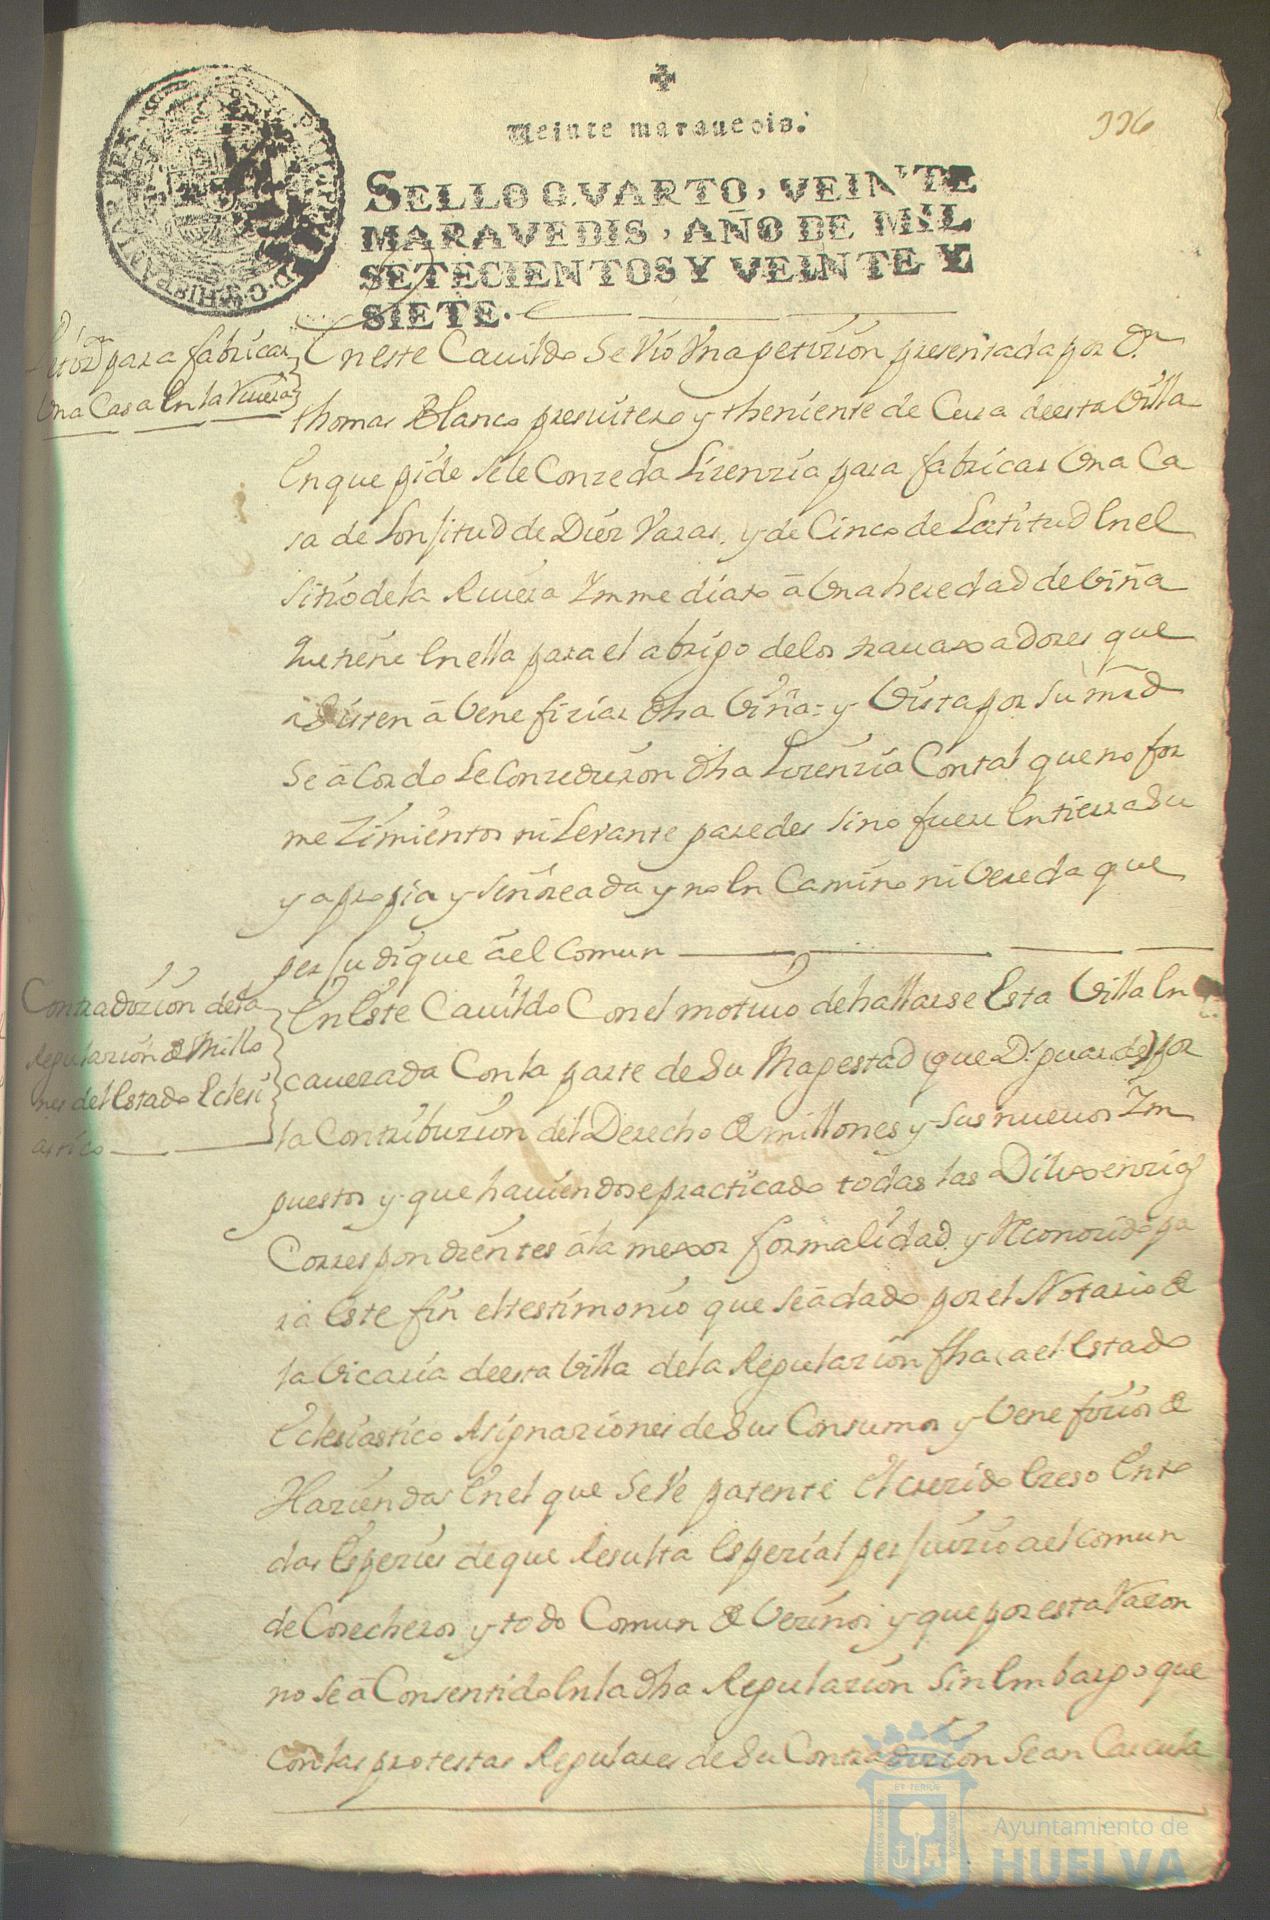 Veinte maravedis.
336
SELLO QVARTO, VEINTE
MARAVEDIS, AÑO DE MIL
SETECIENTOS Y VEINTE Y
SIETE.
para fabricar
Una Casa en la Rivera
En este Cavildo Se vio Una petizion presentada por Dn
thomas Blanco presvitero y theniente de Cura de esta Villa
En que pide Sele Conzeda Lizenzia para fabricar Una Ca
sa de Lonjitud de Diez Varas, y de Cinco de Latitud En el
Sitio de la Rivera Ynmediato â Una heredad de Viña
que tiene En ella para el abrigo de los travaxadores que
asisten â Venefiziar dha Viña= y Vista por su mrd
Se âCordo Le Conzedieron dha Lizenzia Con tal que no for
me Zimientos ni Levante paredes Sino fuere En tierra Su
ya propia y Señoreada y no En Camino ni Vereda que
perjudique âel Comun
Contradizion de la
Regulazion de Millo
nes del Estado Eclesi
astico
En Este Cavildo Con el motivo de hallarse Esta Villa En
cavezada Con la parte de Su Magestad (que Ds. guarde) por
la Contribuzion del Derecho de millones y Sus nuevos Ym
puestos y que haviendose practicado todas las Dilixenzias
Correspondientes â la mexor formalidad y Reconozido pa
ra Este fin el testimonio que Se â dado por el Notario de
la Vicaria de esta Villa de la Regulazion fha a el Estado
Eclesiastico Asignaziones de Sus Consumos y Venefizios de
Haziendas En el que Se Ve patente El Crezido Exeso En to
das Espezies de que Resulta Espezial perjuizio a el comun
de Cosecheros y todo Comun de Vezinos y que por esta Razon
no Se â Consentido En la dha Regulazion Sin Embargo que
con las protestas Regulares de Su Contradizion Sean
Ayuntamiento de
HUELVA